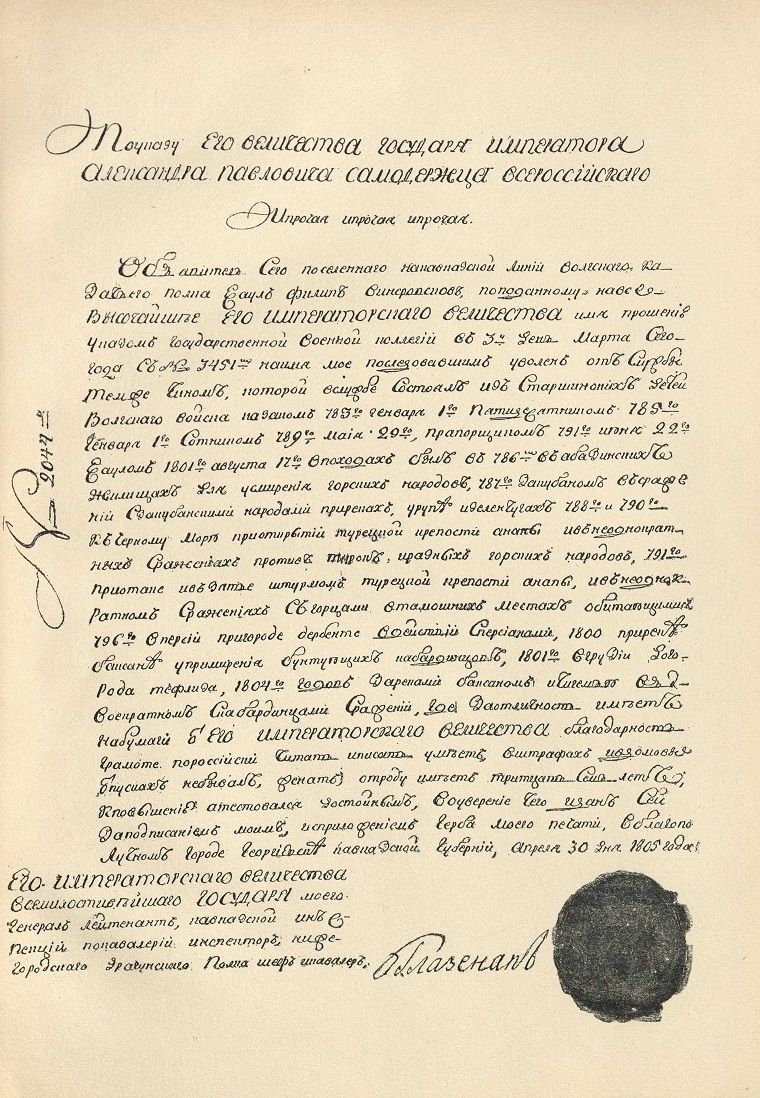 По указу ЕГО ВЕЛИЧЕСТВА ГОСУДАРЯ ИМПЕРАТОРА
АЛЕКСАНДРА ПАВЛОВИЧА САМОДЕРЖЦА ВСЕРОССІЙСКАГО
Ипрочая ипрочая ипрочая.
Объ Сего поселеннаго накавказской Линіи волгскаго ка-
зачьего полка Есаулъ филипъ поподанному навсе
Высочайшее ЕГО ИМПЕРАТОРСКАГО ВЕЛИЧЕСТВА имя прошенію
Указомъ государственной Военной коллегіи въ 3й День Марта Сего
года Съ № 3451мъ наимя мое последовавшимъ уволенъ отъ Службы
темже Чиномъ, которой вслужбе Состоялъ изъ Старшинскихъ Детей
Волгскаго войска казакомъ генваря 1го Пятидесятникомъ 785го
Генваря 1го Сотникомъ 789го Маія 29го, прапорщикомъ 791го июня 22го
Есауломъ 1801го августа 17го Впоходахъ былъ въ 786мъ въ абазинскихъ
Жилищахъ Для усмиренія горскихъ народовъ, 787го Закубаномъ всраже
ніи Сзакубанскими народами прирекахъ, урупѣ 788го и 790го
Къ Черному Морю приоткрытіи турецкой крепости анапы ивънеоднократ
ныхъ Сраженіяхъ противъ турокъ, иразныхъ горскихъ народовъ, 791го
приотаке ивзятье штурмомъ турецкой крепости анапы, ивънеоднок
Ратномъ Сраженіяхъ Съ горцами втамошнихъ Местахъ обитающими
796го Вперсіи пригороде дербенте вдействіи Сперсіанами, 1800 прирекѣ
баксанѣ уприміренія бунтующихъ кабардинцовъ, 1801го вгрузіи Горо-
рода тефлиза, 1804го Зареками баксаномъ
Воекратномъ Скабардинцами Сраженіи, где Заотличность иметъ
набумагѣ ЕГО ИМПЕРАТОРСКАГО ВЕЛИЧЕСТВА благодарность
грамоте пороссійски Читать иписать уметъ, вштрафахъ
небывалъ, женатъ отроду иметъ тритцать Семь летъ,
Кповышенію атестовался достойнымъ, Воуверение Чего изанъ Сей
Заподписаніемъ моимъ, исприложеніемъ Герба моего печати, вблагопо
Лучномъ городе Георгіевскѣ кавказской губерніи, апреля 30 дня 1805 года
ЕГО ИМПЕРАТОРСКАГО ВЕЛИЧЕСТВА
ВСЕМИЛОСТИВѢЙШАГО ГОСУДАРЯ моего
Генералъ Лейтенантъ, кавказской инс
пекціи покавалеріи инспекторъ, ниже-
городскаго драгунскаго Полка шефъ икавалеръ,
Глазенапъ
№ 2044й